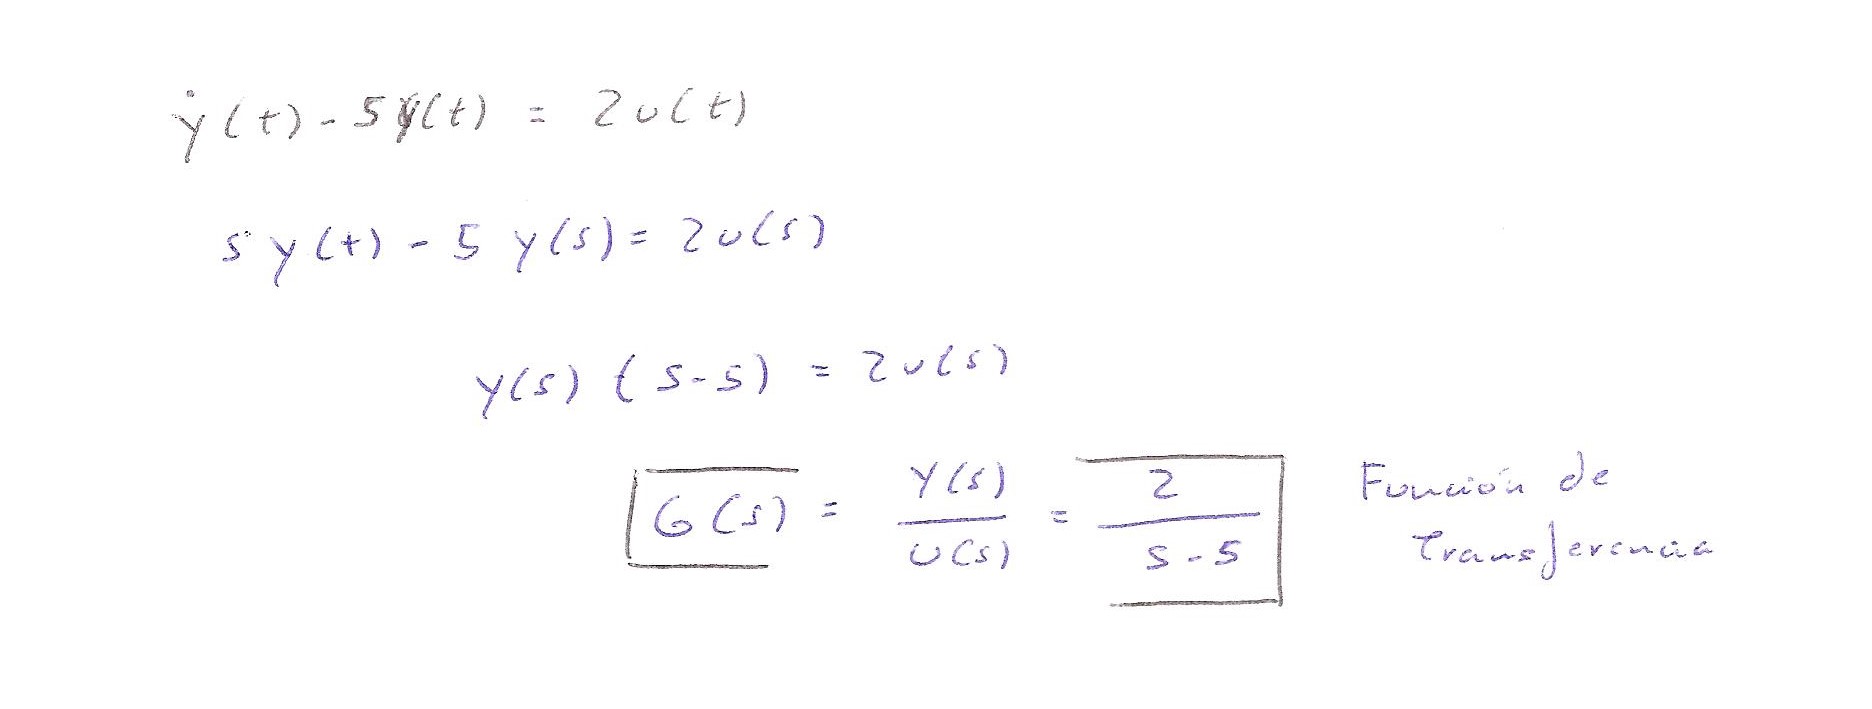 ẏ(t) - 5y(t) = 2u(t)
s y(t) - 5 y(s) = 2u(s)
y(s) (s-5) = 2u(s)
G(s) = Y(s)/U(s) = 2/s-5 Función de
Transferencia